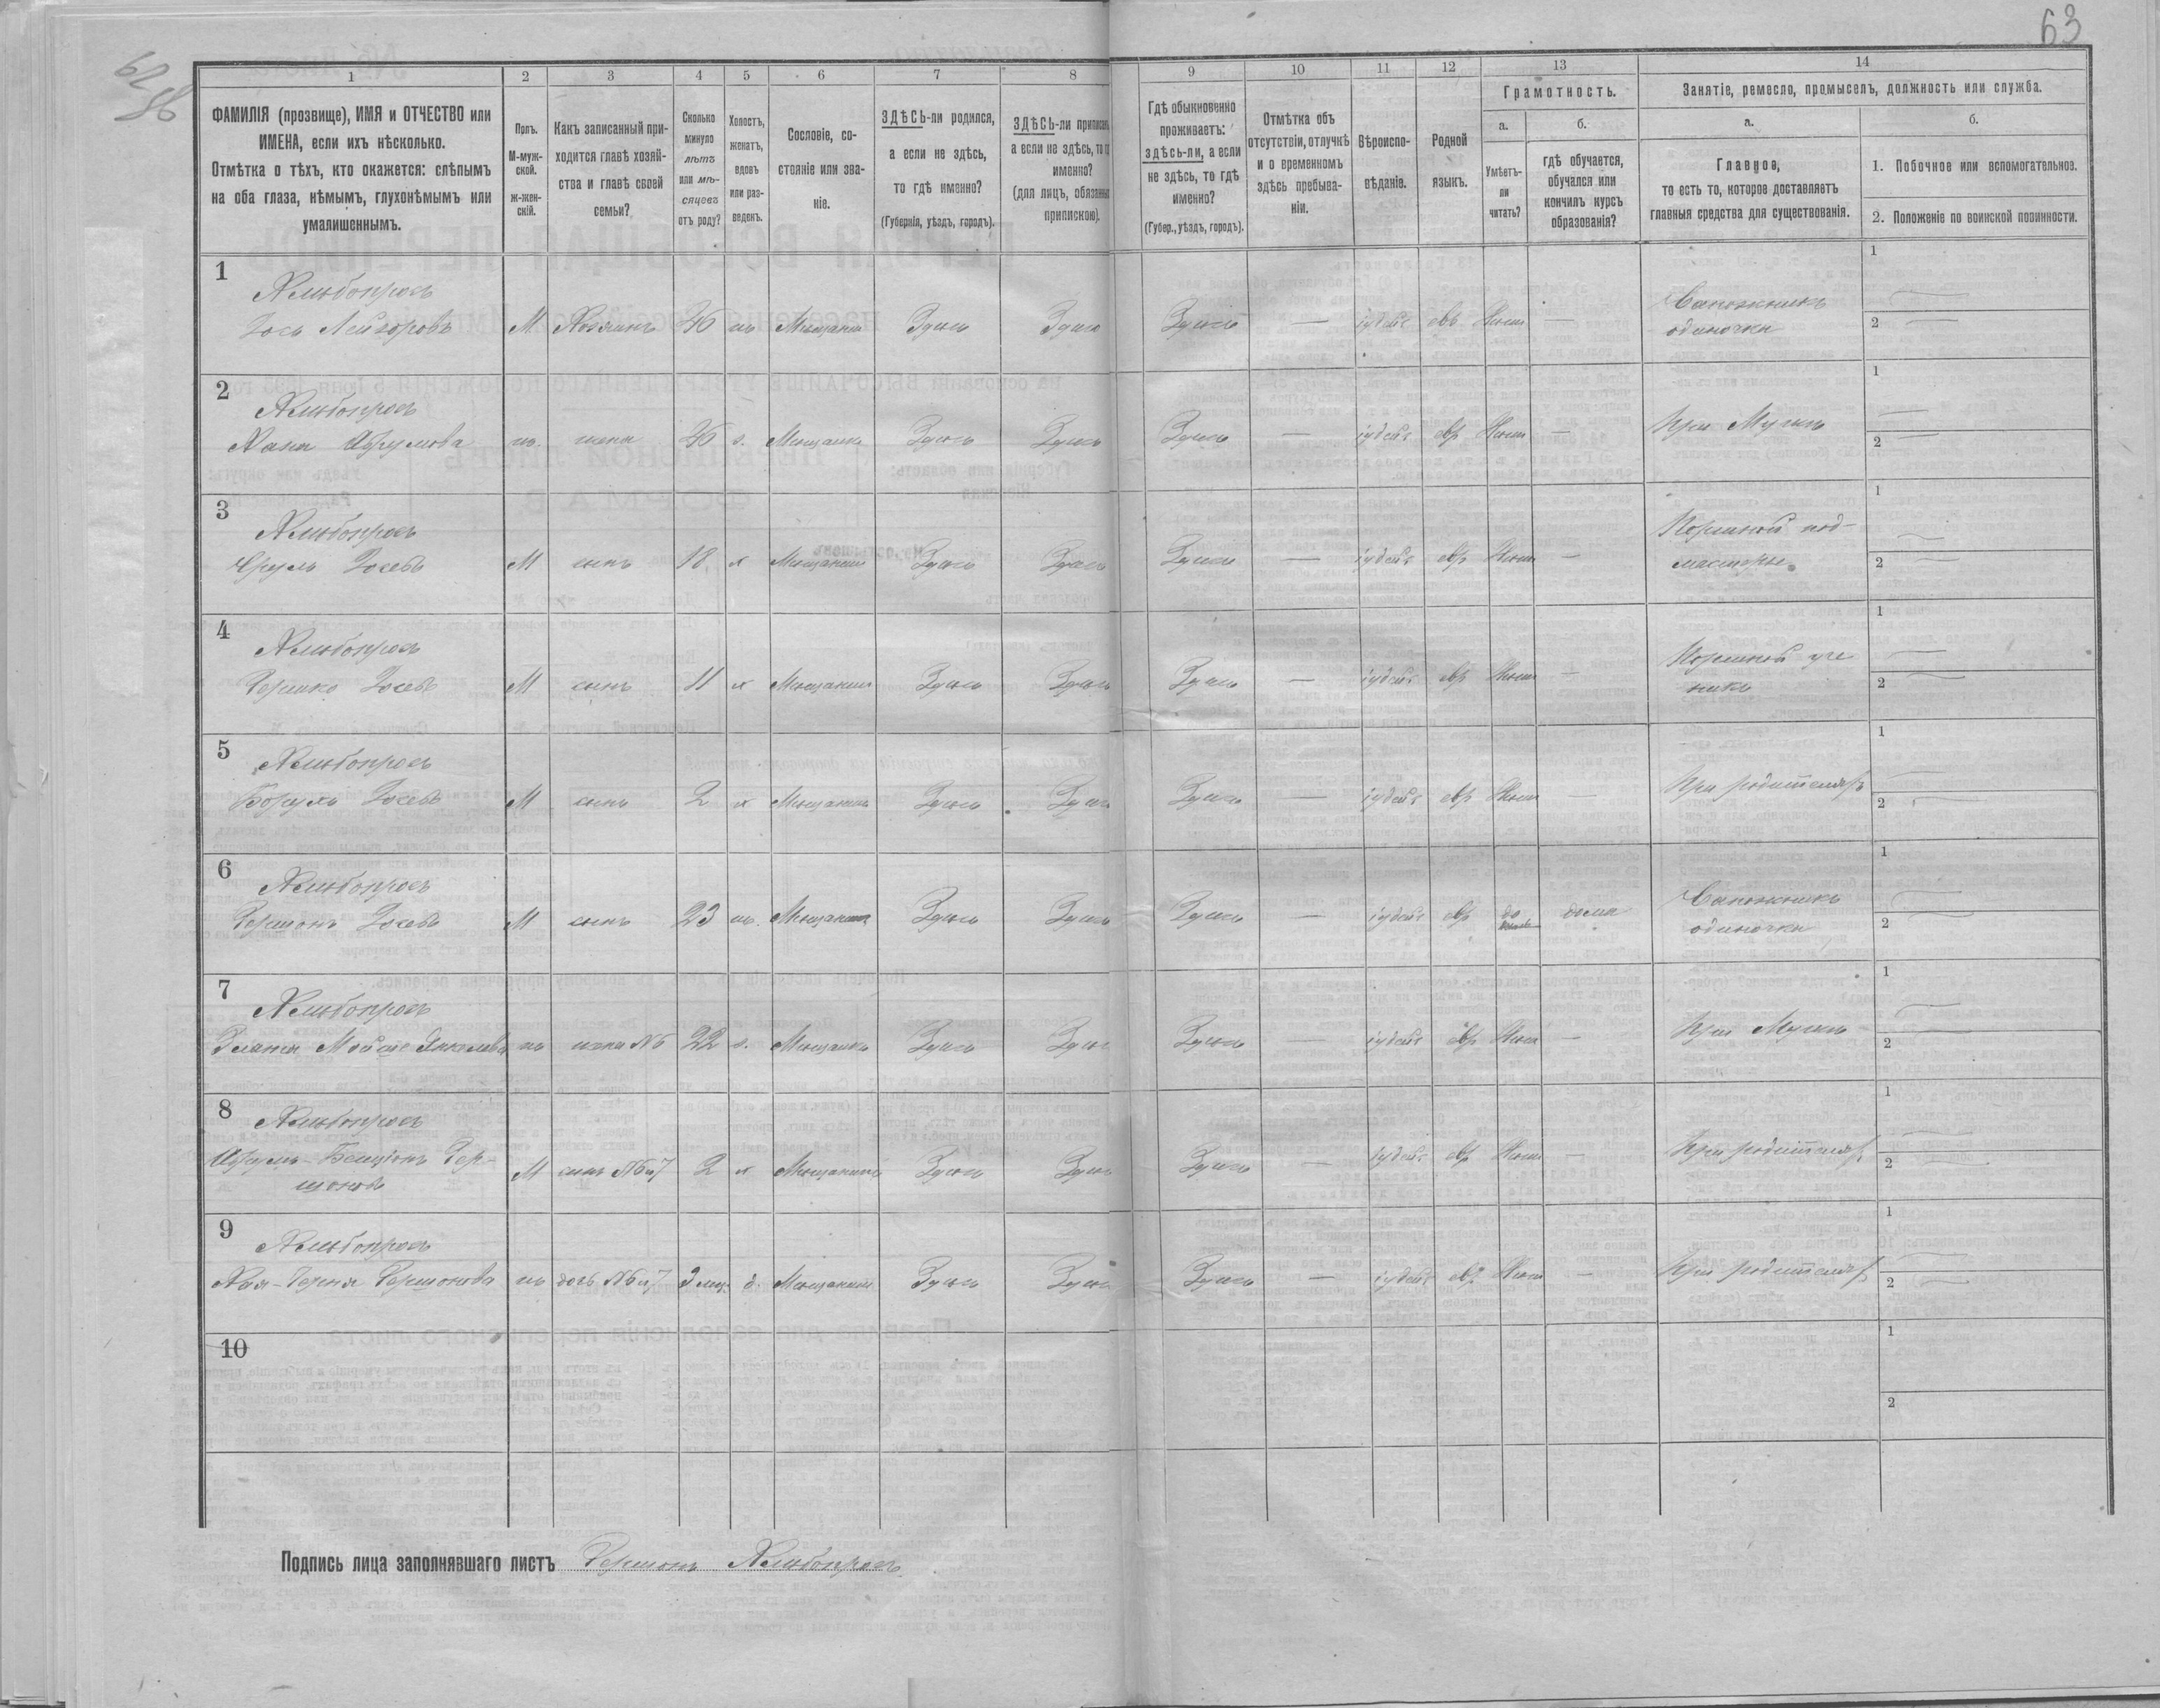 63
62
86
1 2 3 4 5 6 7 8 9 10 11 12 13 14
ФАМИЛІЯ (прозвище), ИМЯ и ОТЧЕСТВО или
ИМЕНА, если ихъ нѣсколько.
Отмѣтка о тѣхъ, кто окажется: слѣпымъ
на оба глаза, нѣмымъ, глухонѣмымъ или
умалишеннымъ.
Полъ.
М-муж-
ской.
Ж-жен-
скій.
Какъ записанный при-
ходится главѣ хозяй-
ства и главѣ своей
семьи?
Сколько
минуло
лѣтъ
или мѣ-
сяцевъ
отъ роду?
Холостъ,
женатъ,
вдовъ
или раз-
веденъ.
Сословіе, со-
стояніе или зва-
ніе.
ЗДѢСЬ-ли родился,
а если не здѣсь,
то гдѣ именно?
(Губернія, уѣздъ, городъ).
ЗДѢСЬ-ли приписанъ
а если не здѣсь, то
именно?
(для лицъ, обязанныхъ
припискою).
Гдѣ обыкновенно
проживаетъ:
здѣсь-ли, а если
не здѣсь, то гдѣ
именно?
(Губер., уѣздъ, городъ).
Отмѣтка объ
отсутствіи, отлучкѣ
и о временномъ
здѣсь пребыва-
ніи.
Вѣроиспо-
вѣданіе.
Родной
языкъ.
Грамотность.
а.
Умѣетъ-
ли
читать?
б.
гдѣ обучается,
обучался или
кончилъ курсъ
образованія?
Занятіе, ремесло, промыселъ, должность или служба.
а.
Главное,
то есть то, которое доставляетъ
главныя средства для существованія.
б.
1. Побочное или вспомогательное.
2. Положеніе по воинской повинности.
1
Хлѣбопросъ Сапожникъ
М Хозяинъ 46 ж Мѣщанин Здѣсь Здѣсь Здѣсь — іудейс евр Нѣт — одиночка
1 —
2 —
2
Хлѣбопросъ
Хана ж. жена 46 з. Мѣщанка Здѣсь Здѣсь Здѣсь — іудейс евр Нѣт — При Мужѣ
1 —
2 —
3
Хлѣбопросъ Портной под-
Сруль Іосев М сынъ 18 х Мѣщанин Здѣсь Здѣсь Здѣсь — іудейс евр Нѣт — мастерье
1 —
2 —
4
Хлѣбопросъ Портной уче
Гершко Іосев М сынъ 11 х Мѣщанин Здѣсь Здѣсь Здѣсь — іудейс евр Нѣт — никъ
1 —
2 —
5
Хлѣбопросъ
Борухъ Іосев М сынъ 2 х Мѣщанин Здѣсь Здѣсь Здѣсь — іудейс евр Нѣт — При родителяхъ
1 —
2 —
6
Хлѣбопросъ Сапожникъ
Гершонъ Іосев М сынъ 23 ж. Мѣщанин Здѣсь Здѣсь Здѣсь — іудейс евр да дома одиночка
1 —
2 —
7
Хлѣбопросъ
Злата ж жена №6 22 з. Мѣщанка Здѣсь Здѣсь Здѣсь — іудейс евр Нѣт — При Мужѣ
1 —
2 —
8
Хлѣбопросъ
Абрумъ-Бенціонъ Гер-
шонов М сынъ №6и7 2 х Мѣщанинъ Здѣсь Здѣсь Здѣсь — іудейс евр Нѣт — При родителях
1 —
2 —
9
Хлѣбопросъ
Хая-Гершонова ж дочь №6и7 3 мѣс д. Мѣщанин Здѣсь Здѣсь Здѣсь — іудейс евр Нѣт — При родителях
1 —
2 —
10
1
2
Подпись лица заполнявшаго листъ Гершонъ Хлѣбопросъ